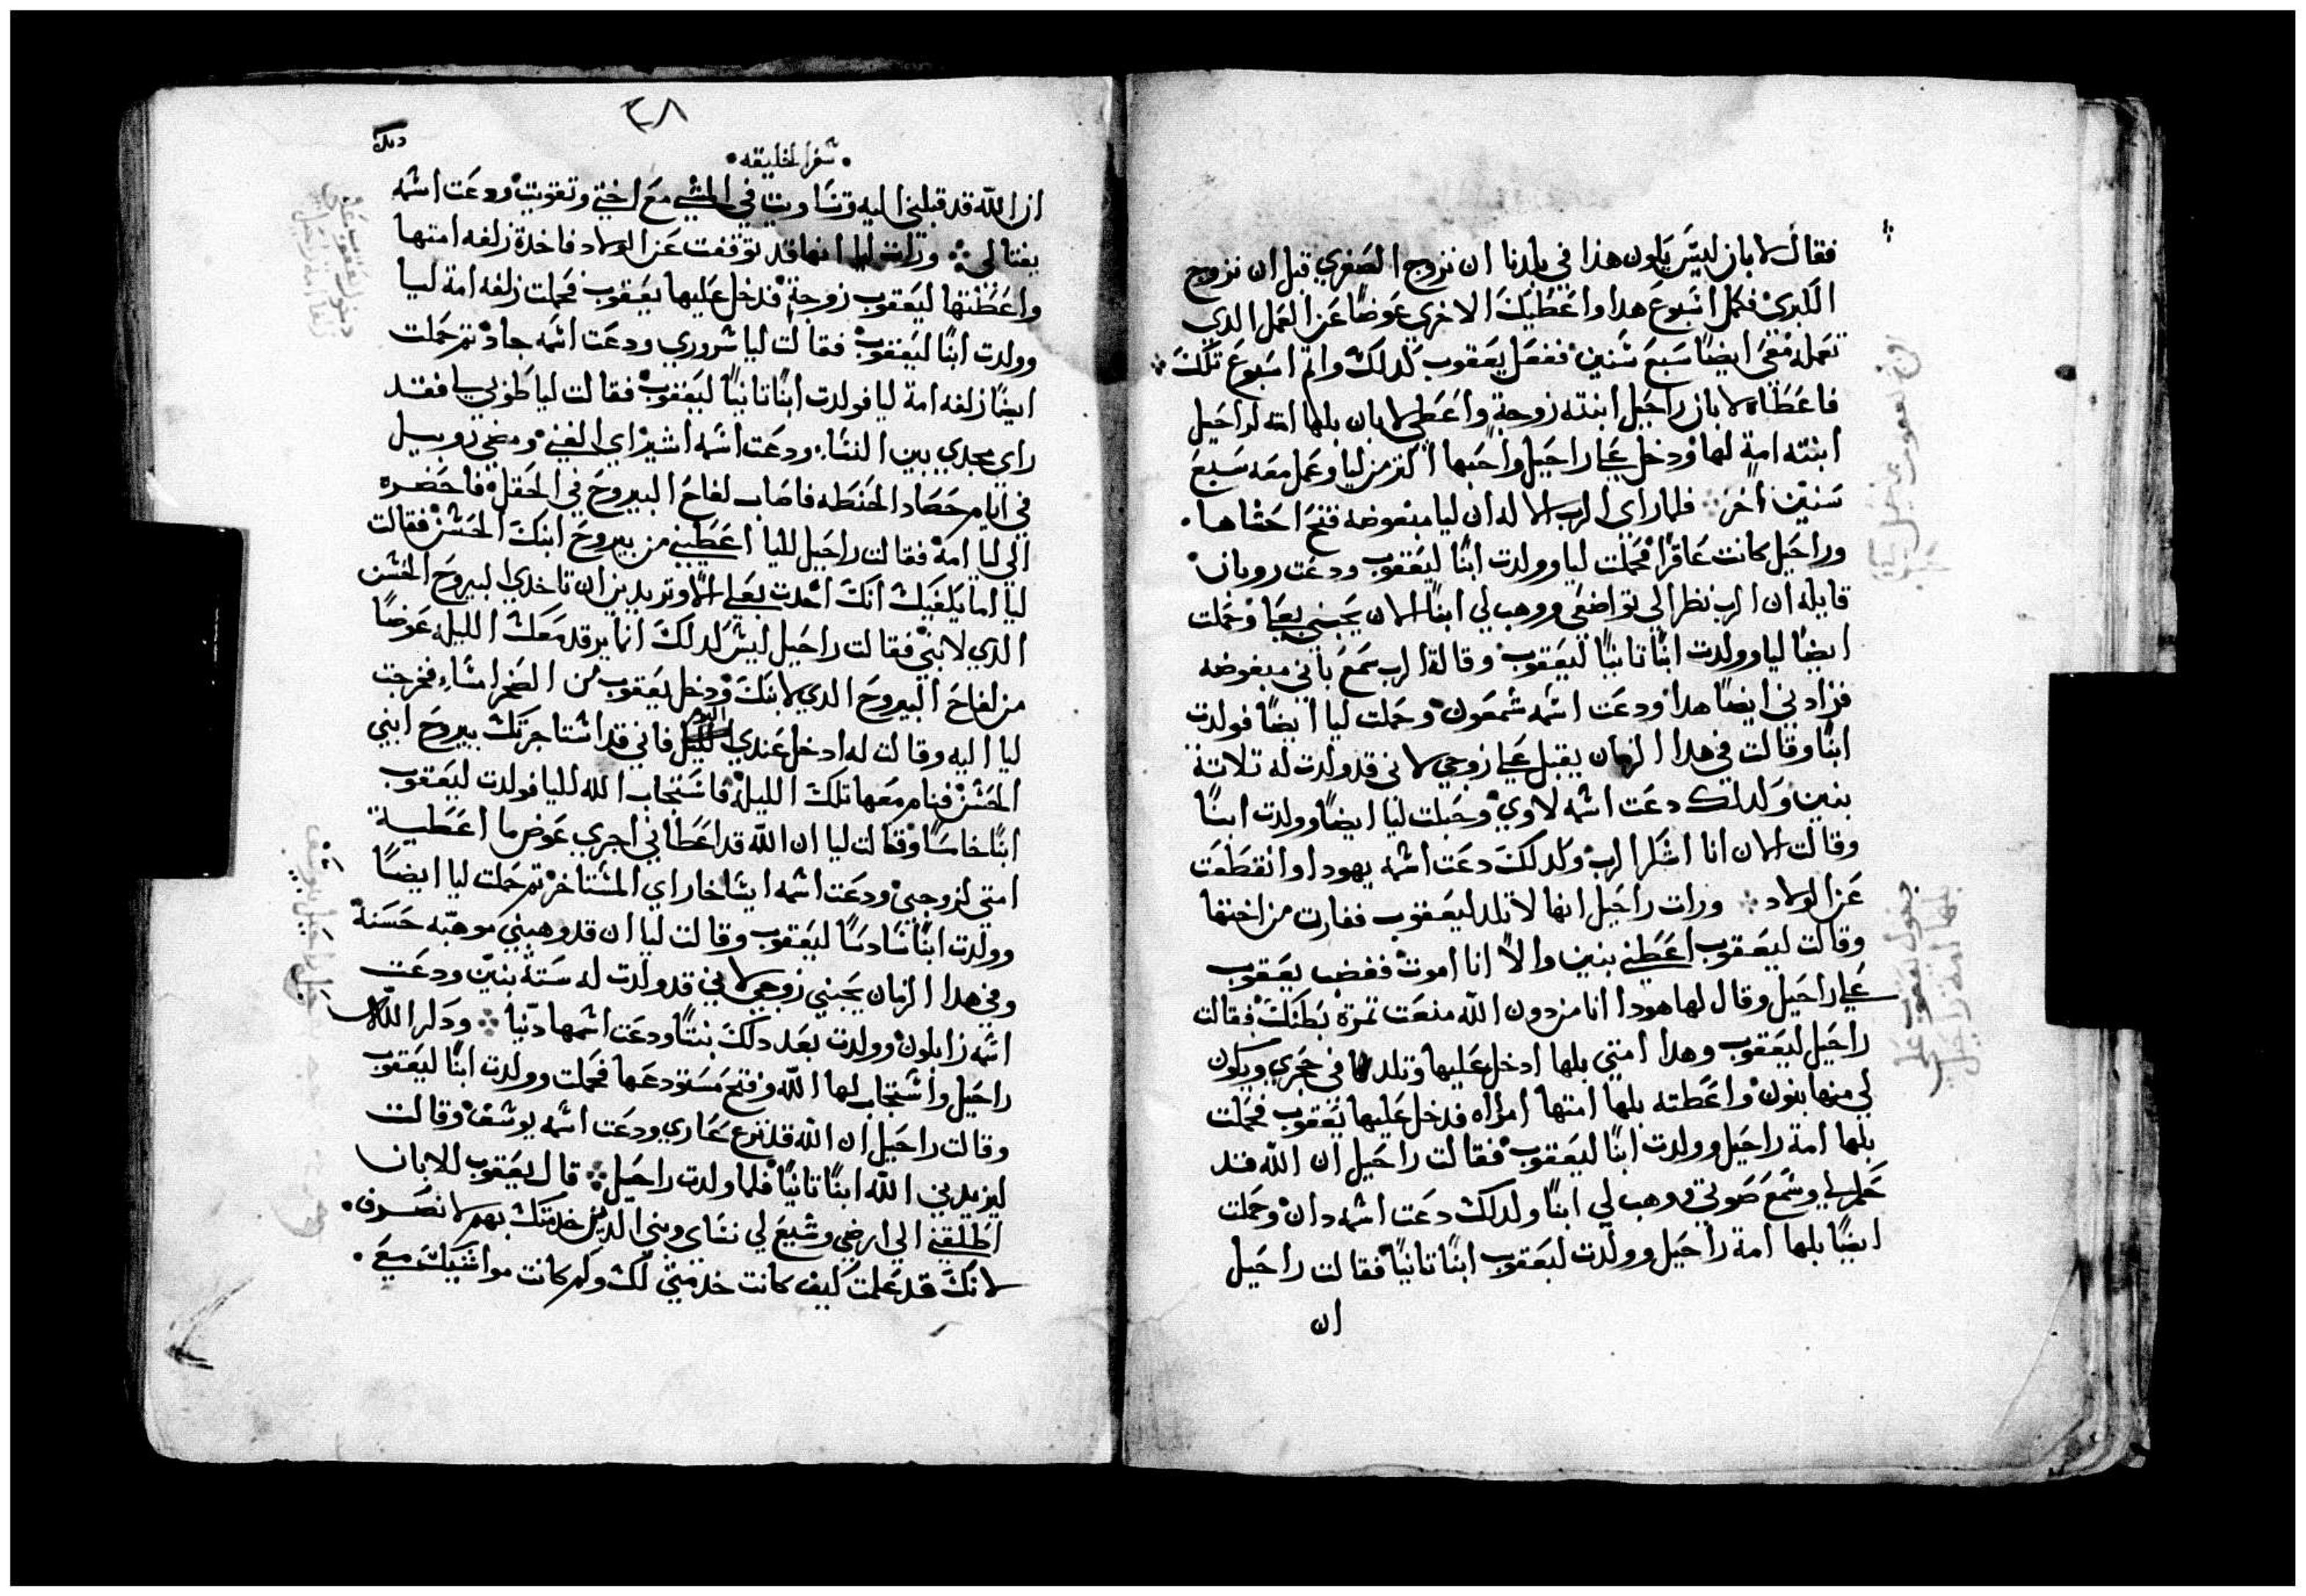 فقال لابان ليس يكون هذا في بلدنا ان نزوج الصغري قبل ان نزوج
الكبري فكمل اسبوع هدا واعطيك الاخري عوضًا عن العمل الدي
تعمله معي ايضًا سبع سنين ففعل يعقوب كدلك واتم اسبوع تلك
فاعطاه لابان راحيل ابنته زوجة واعطي لابان بلها امته لراحيل
ابنته امة لها ودخل علي راحيل واحبها اكتر من ليا وعمل معه سبع
سنين اخر فلما راي الرب الاله ان ليا مبغوضه فتح احشاها
وراحيل كانت عاقرًا فحملت ليا وولدت ابنًا ليعقوب ودعت روبان
قايله ان الرب نظر الي تواضعي ووهب لي ابنًا الان يحبني بعلي وحملت
ايضًا ليا وولدت ابنًا تانيًا ليعقوب وقالة الرب سمع باني مبغوضه
فزادني ايضًا هدا ودعت اسمه شمعون وحملت ليا ايضًا فولدت
ابنًا وقالت في هدا الزمان يقبل علي زوجي لاني قد ولدت له تلاتة
بنين ولدلك دعت اسمه لاوي وحبلت ليا ايضًا وولدت ابنًا
وقالت الان انا اشكر الرب ولدلك دعت اسمه يهودا وانقطعت
عن الولاد ورات راحيل انها لا تلد ليعقوب فغارت من اختها
وقالت ليعقوب اعطني بنين والا انا اموت فغضب يعقوب
علي راحيل وقال لها هودا انا من دون الله منعت تمرة بطنك فقالت
راحيل ليعقوب وهدا امتي بلها ادخل عليها وتلد في حجري ويكون
لي منها بنون واعطته بلها امتها امراه فدخل عليها يعقوب فحملت
بلها امة راحيل وولدت ابنًا ليعقوب فقالت راحيل ان الله قد
حكم لي وسمع صوتي ووهب لي ابنًا ولدلك دعت اسمه دان وحملت
ايضًا بلها امة راحيل وولدت ليعقوب ابنًا تانيًا فقالت راحيل
ان
دخول يعقوب علي
بلها امة راحيل
٣٨
سفر الخليقه
ان الله قد قبلني اليه وتساويت في المشي مع اختي وتقويت ودعت اسمه
يفتالي ورات ليا انها قد توقفت عن الولاد فاخدة زلفه امتها
واعطتها ليعقوب زوجة فدخل عليها يعقوب فحملت زلفه امة ليا
وولدت ابنًا ليعقوب فقالت ليا سروري ودعت اسمه جاد تم حملت
ايضًا زلفه امة ليا فولدت ابنًا تانيًا ليعقوب فقالت ليا طوبي ليا فقد
راي مجدي بين النساء ودعت اسمه اشير اي الغني ومضي روبيل
في ايام حصاد الحنطه فاصاب لفاح البيروح في الحقل فاحضره
الي ليا امه فقالت راحيل لليا اعطيني من بيروح ابنك الحسن فقالت
ليا اما يكفيك انك اخدت بعلي الا وتريدين ان تاخدي البيروح الحسن
الدي لابني فقالت راحيل ليس كدلك انما يرقد معك الليله عوضًا
من لفاح البيروح الدي لابنك ودخل يعقوب من الصحرا مساء فخرجت
ليا اليه وقالت له ادخل عندي اليوم فاني قد استاجرتك بيروح ابني
الحسن فنام معها تلك الليله فاستجاب الله لليا فولدت ليعقوب
ابنًا خامسًا وقالت ليا ان الله قد اعطاني اجري عوض ما اعطية
امتي لزوجي ودعت اسمه ايساخار اي المستاخر تم حملت ليا ايضًا
وولدت ابنًا سادسًا ليعقوب وقالت ليا ان قد وهبني موهبه حسنة
وفي هدا الزمان يحبني زوجي لاني قد ولدت له ستة بنين ودعت
اسمه زابلون وولدت بعد دلك بنتًا ودعت اسمها دنيا ودكر الله
راحيل واستجاب لها الله وفتح مستودعها فحملت وولدت ابنًا ليعقوب
وقالت راحيل ان الله قد نزع عاري ودعت اسمه يوسف وقالت
ليزيدني الله ابنًا تانيًا فلما ولدت راحيل قال يعقوب للابان
اطلقني الي ارضي وشيع لي نساي وبني الدين خدمتك بهم لانصرف
لانك قد علمت كيف كانت خدمتي لك وكم كانت مواشيك معي
دخول يعقوب علي
زلفا امة راحيل